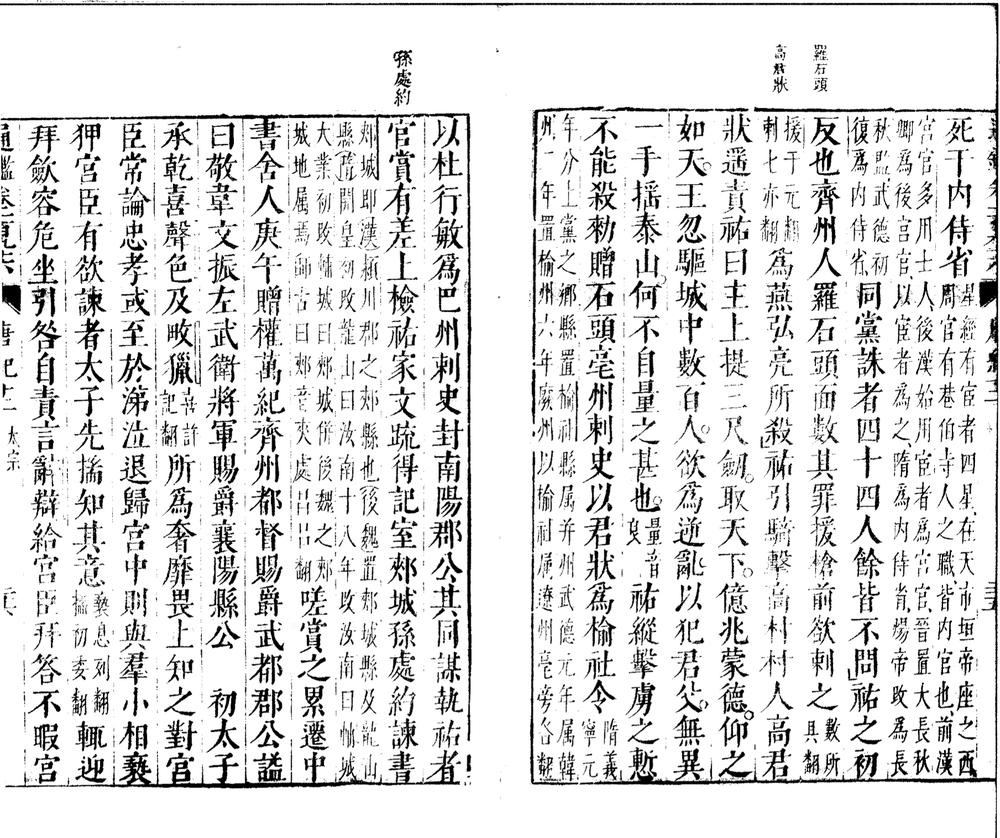 羅石頭
高君狀
死于内侍省星經有宦者四星在天市垣帝座之西
周官有巷伯寺人之職皆内官也前漢
宮官多用士人後漢始用宦者為宮官晉置大長秋
卿為後宮官以宦者為之隋為内侍省煬帝改為長
秋監武德初
復為内侍省同黨誅者四十四人餘皆不問祐之初
反也齊州人羅石頭面數其罪援槍前欲刺之數所
具翻
援于元翻
刺七亦翻為燕弘亮所殺祐引騎擊高村村人高君
狀遥責祐曰主上提三尺劒取天下億兆蒙德仰之
如天王忽驅城中數百人欲為逆亂以犯君父無異
一手摇泰山何不自量之甚也量音
良祐縱擊虜之慙
不能殺勑贈石頭亳州刺史以君狀為榆社令隋義
寧元
年分上黨之鄉縣置榆社縣属并州武德元年属韓
州一年置榆州六年廢州以榆社属遼州亳旁各翻
孫處約
以杜行敏為巴州刺史封南陽郡公其同謀執祐者
官賞有差上檢祐家文疏得記室郟城孫處約諫書
郟城即漢潁川郡之郟縣也後魏置郟城縣及龍山
縣隋開皇初改龍山曰汝南十八年改汝南曰輔城
大業初改輔城曰郟城併後魏之郟
城地属焉師古曰郟音夾處昌吕翻嗟賞之累遷中
書舍人庚午贈權萬紀齊州都督賜爵武都郡公謚
曰敬韋文振左武衛將軍賜爵襄陽縣公　初太子
承乾喜聲色及畋獵喜許
記翻所為奢靡畏上知之對宮
臣常論忠孝或至於涕泣退歸宮中則與羣小相褻
狎宮臣有欲諫者太子先揣知其意褻息列翻
揣初委翻輒迎
拜歛容危坐引咎自責言辭辯給宮臣拜答不暇宮
唐紀十二 太宗